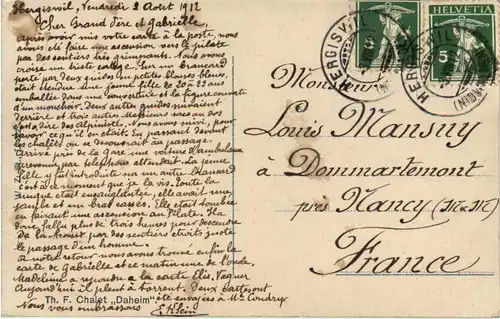 Hergiswil, Vendredi 2 Août 1912
Cher Grand Père et Gabrielle,
après avoir mis votre carte à la poste, nous
avons été faire une ascension vers le pilate
par des sentiers très grimpants. Nous avons
croisé un triste cortège. Sur un brancard
porté par deux guides en petites blouses bleues,
était étendue une jeune fille de 20 à 22 ans
emballée dans une couverture et la figure couverte
d'un mouchoir. Deux autres guides suivaient
derrière et trois autres Messieurs avec sacs au dos
des Alpinistes. Nous avons suivi, pour
savoir ce qu'il en était. En passant devant
les chalets on se découvrait au passage.
Arrivé près de la gare une voiture d'ambulance
prévenue par téléphone attendait. La jeune
fille y fut introduite sur un autre brancard
c'est à ce moment que je la vis. Toute la
était ensanglantée, elle avait une
jambe et un bras cassés. Elle était tombée
en faisant une ascension au Pilate. Il a
donc fallu plus de trois heures pour descendre
de là par des sentiers étroits juste
le passage d'un homme.
A notre retour nous avons trouvé enfin la
carte de Gabrielle et ce matin une de l'oncle.
Madeleine a répondu à la carte Elis. Vagner
Aujourd'hui il pleut à torrent. Deux cartes ont
été envoyées à Me Coudry
Nous vous embrassons
E. Klein
Th. F. Chalet „Daheim"
HELVETIA
5
5
HERGISWIL
HERGISWIL
(NIDW)
Monsieur
Louis Mansuy
à Dommartemont
près Nancy (M et M)
France